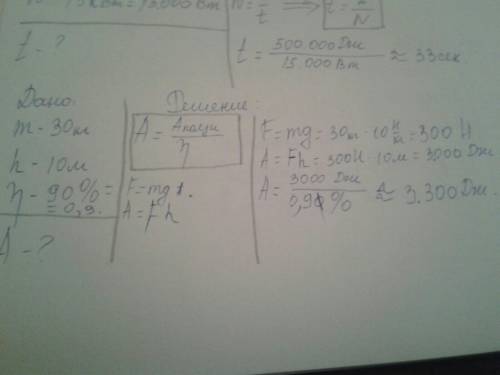 15кВт = 15.000 Вт
t - ?
t = 500.000 Дж / 15.000 Вт ≈ 33сек
Дано:
m - 30кг
h - 10м
η - 90% =
= 0,9.
A - ?
Решение:
A = Aполезн / η
F = mg
A = Fh
F = mg = 30кг · 10 Н/кг = 300 Н
A = Fh = 300Н · 10м = 3000 Дж
A = 3000 Дж / 0,9 % ≈ 3.300 Дж.